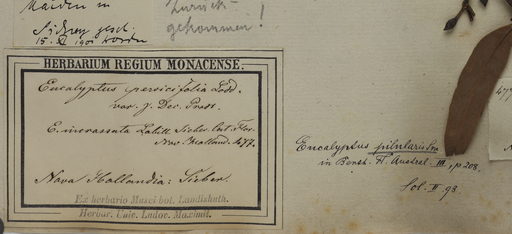 Maiden in
Sidney gesch.
15. XI 1901 worden
zurück
gekommen!
HERBARIUM REGIUM MONACENSE.
Eucalyptus persicifolia Lodd.
var. γ. Dec. Prodr.
E. incrassata Labill. Sieber
Nov. Holland. 477.
Nova Hollandia: Sieber.
Ex herbario Musei bot. Landishuth.
Herbar. Univ. Ludov. Maximil.
Eucalyptus pilularis Sm.
in Benth. Fl. Austral. III, p 208,
Sol. II 98.
477